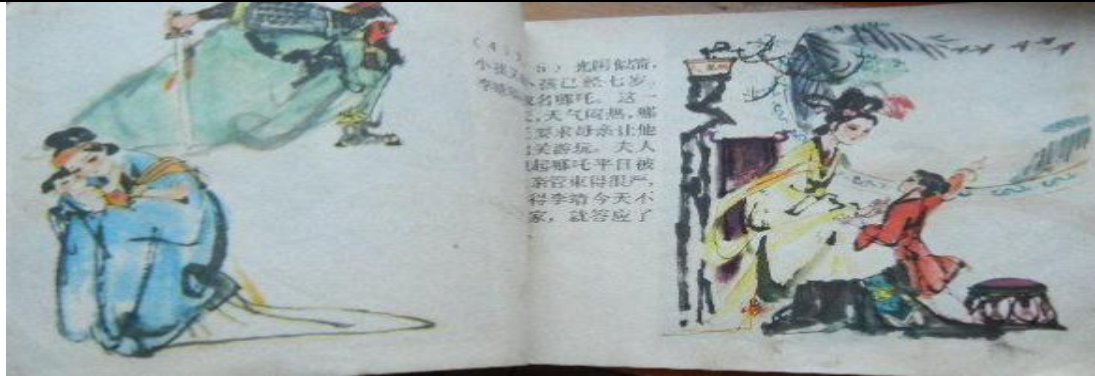 (4)
小孩
李靖
5）光阴似箭，
孩已经七岁。
名哪吒。这一
，天气闷热，哪
要求母亲让他
关游玩。夫人
起哪吒平日被
亲管束得很严，
得李靖今天不
家，就答应了